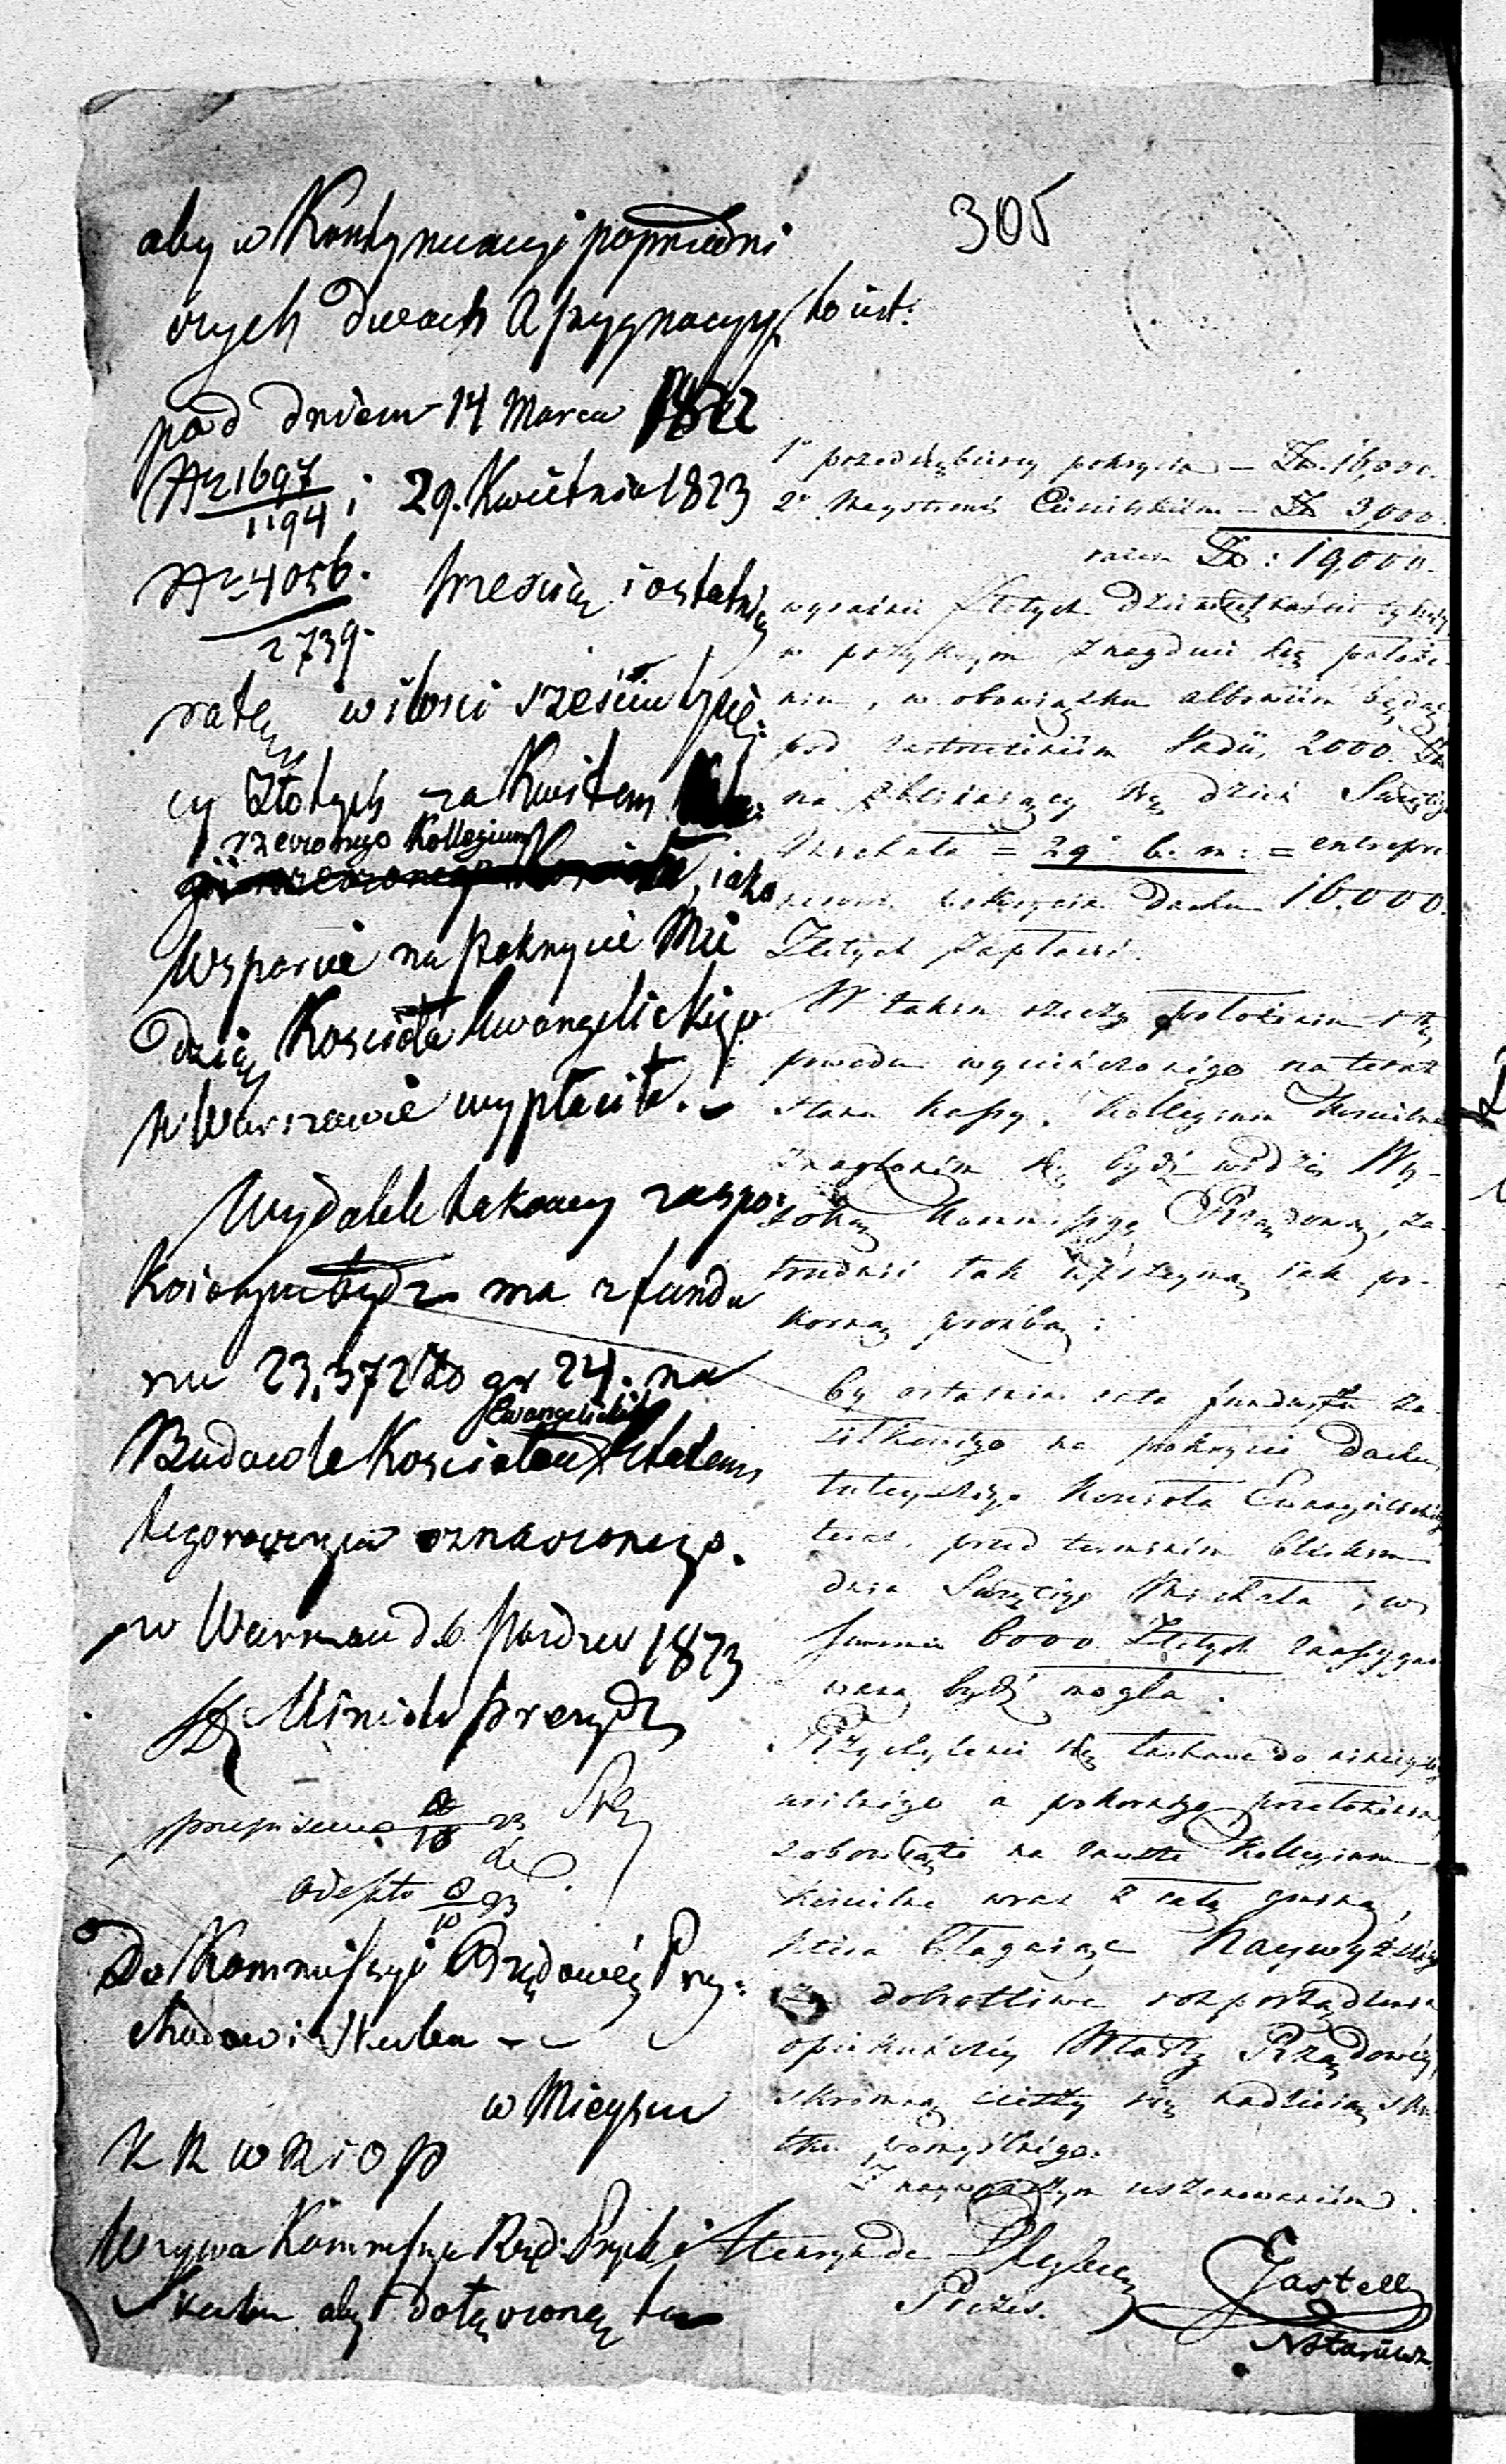 305
aby w Kontynuacyi poprzedni
czych dwóch Assygnacyy, to iest:
pod dniem 14 Marca 1822
Nr 1697/1194 i 29. Kwietnia 1823
Nr 4056./2739. trzecią i ostatnią
ratę w ilości sześciu tysię:
cy Złotych za Kwitem
rzeczonego Kollegium
, iako
Wsparcie na pokrycie Mie
dzią Kościoła Ewangelickiego
w Warszawie wypłaciła.
Wydatek takowy zaspo:
koionym bydź ma z fundu
szu 23,372 Zł gr 24. na
Ewangelickich
Budowle Kościołów Etatem
tegorocznym oznaczonego.
w Warszawie d. 6. Paźdz 1823
Minister Prezyd
przepisano 8/10 23
odesłto 8/10 23
Do Kommissyi Rządowéy Przy:
chodów i Skarbu
w Mieyscu
K R W R i O P
Wzywa Kommissyę Rząd: Przych i
Skarbu aby dołączoną tu
1° przedsiębiercy pokrycia – Zł. 16,000.
2° Maystrowi Ciesielskiem – Zł 3,000.
razem Zł: 19,000.
wyraźnie Złotych Dziewiętnaście tysięcy
w przykrym znayduie się położe-
niu, w obowiązku albowiem będąc
pod zastrzeżeniem Vadii, 2000. Zł
na zbliżaiący się dzień Świętego
Michała = 29° b. m: = entrepre
nerowi pokrycia dachu 16.000.
Złotych zapłacić.
W takim rzeczy położeniu i z
powodu wycieńczonego na teraz
stanu kassy, Kollegium Kościelne
znaglonem się bydź widzi Wy-
soką Kommissyę Rządową, za-
trudnić tak usilną iak po-
korną prośbą:
by ostatnia rata funduszu za-
siłkowego na pokrycie dachu
tuteyszego Kościoła Ewangelickiego
teraz, przed terminem bliskim
dnia Świętego Michała, w
summie 6000 Złotych zaassygno
waną bydź mogła.
Przychylenie się łaskawe do ninieyszego
usilnego a pokornego przełożenia,
zobowiąże na zawsze Kollegium
Kościelne wraz z całą gminą,
która błagaiąc Naywyższego
za dobrotliwe rozporządzenia
opiekuńczéy Władzy Rządowéy,
skromną cieszy się nadzieią sku
tku pomyślnego.
Z naywyższym uszanowaniem.
Prezes.
Jastell
Notariusz